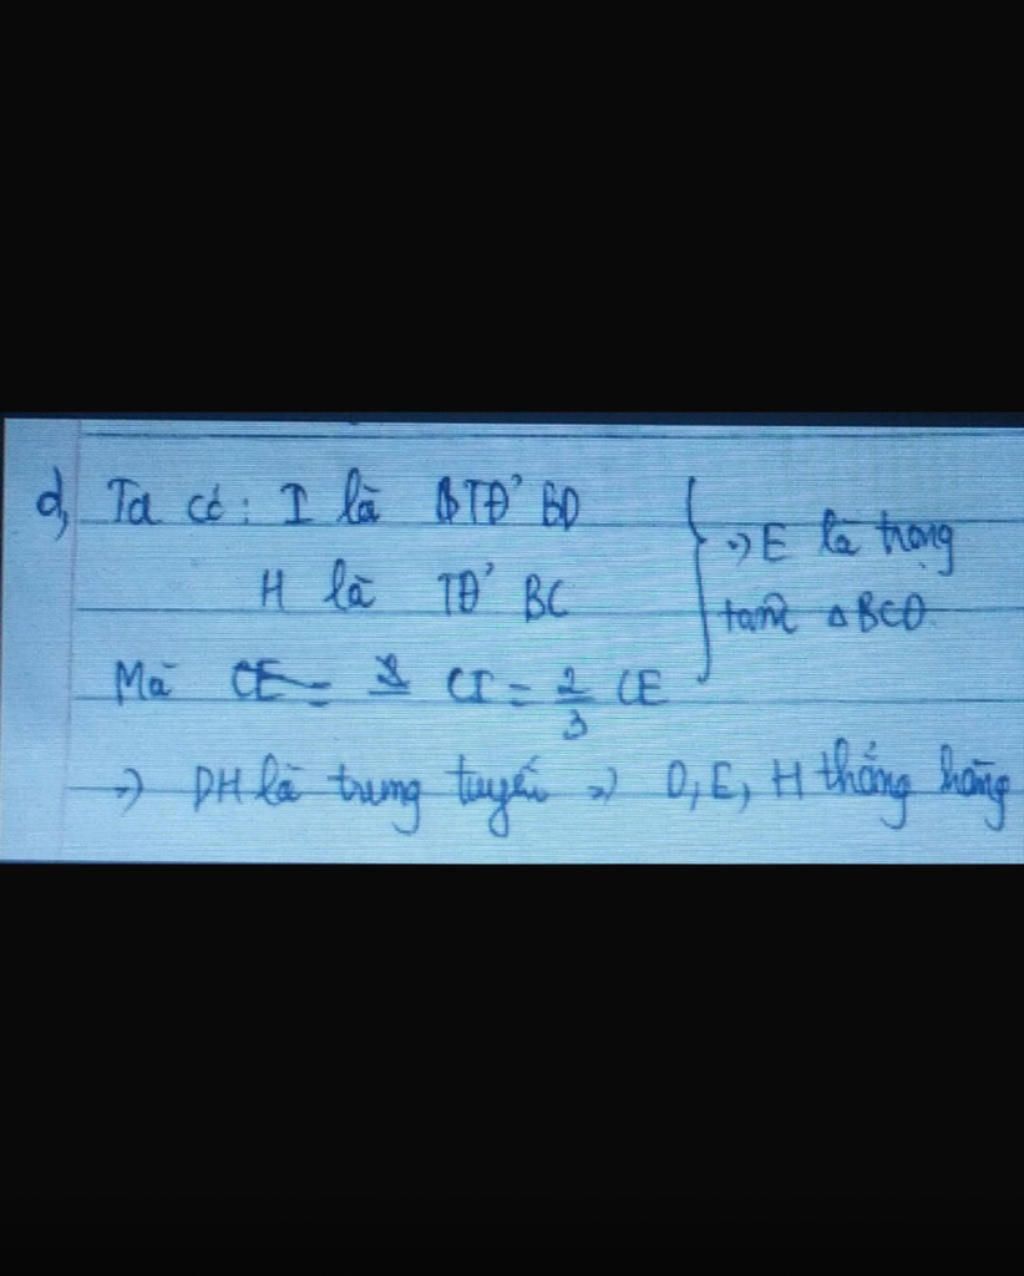 d, Ta có: I là TĐ' BD
H là TĐ' BC
=> E là trọng
tâm Δ BCD.
Mà CE = CI = 2/3 CE
=> DH là trung tuyến => D, E, H thẳng hàng